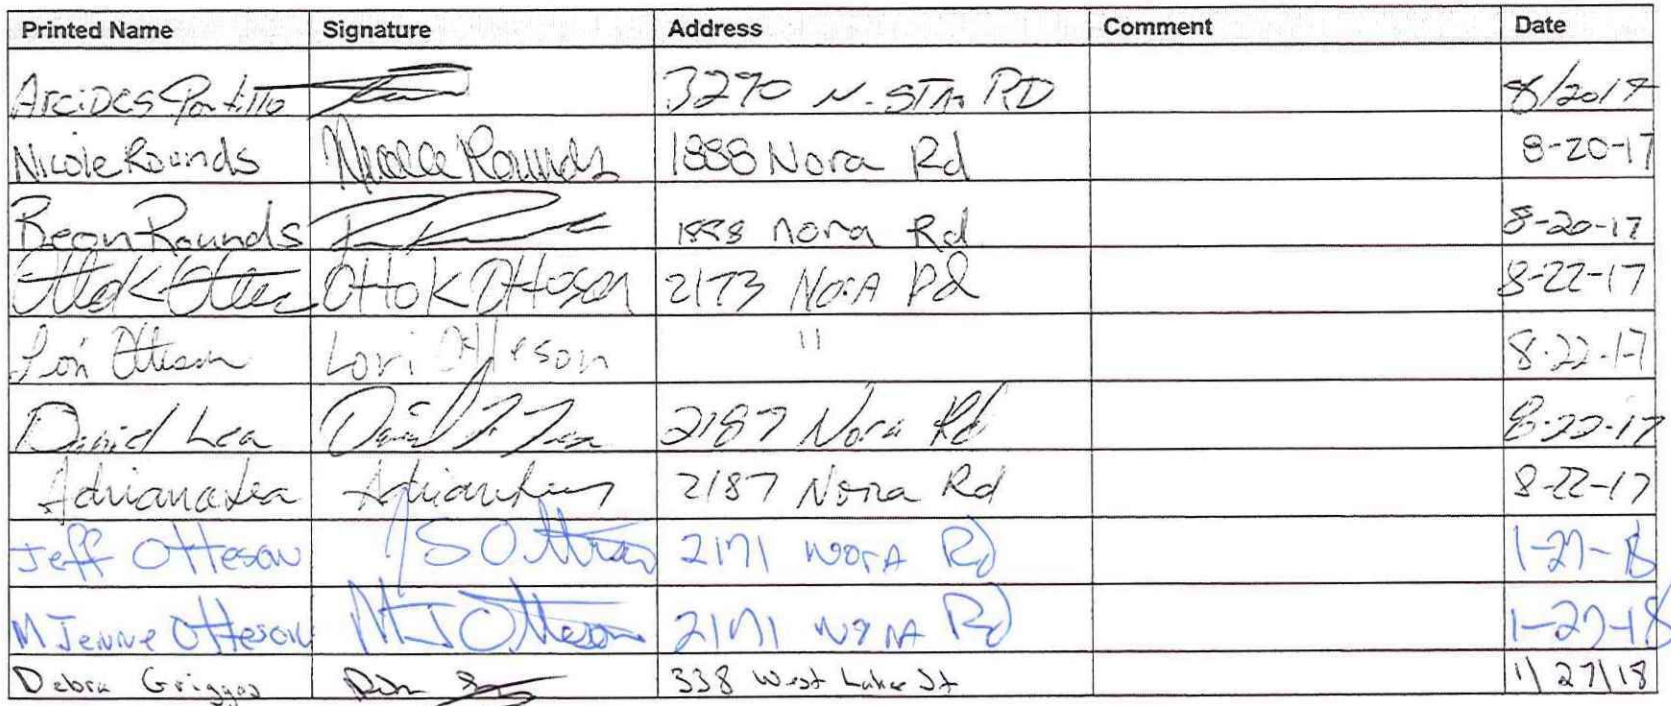 Printed Name Signature Address Comment Date
Arcides Portillo 3290 N. STAR RD 8/2017
Nicole Rounds Nicole Rounds 1888 Nora Rd 8-20-17
Bean Rounds 1888 Nora Rd 8-20-17
Otto K Otteson Otto K Otteson 2173 NorA Rd 8-22-17
Lori Otteson Lori Otteson " 8-22-17
Daniel Lea Daniel Lea 2187 Nora Rd 8-22-17
Adriana Lea Adriana Lea 2187 Nora Rd 8-22-17
Jeff Otteson JS Otteson 2171 NorA Rd 1-27-18
M Jenne Otteson MJ Otteson 2171 NorA Rd 1-27-18
Debra Griggs 338 West Lake St 1/27/18